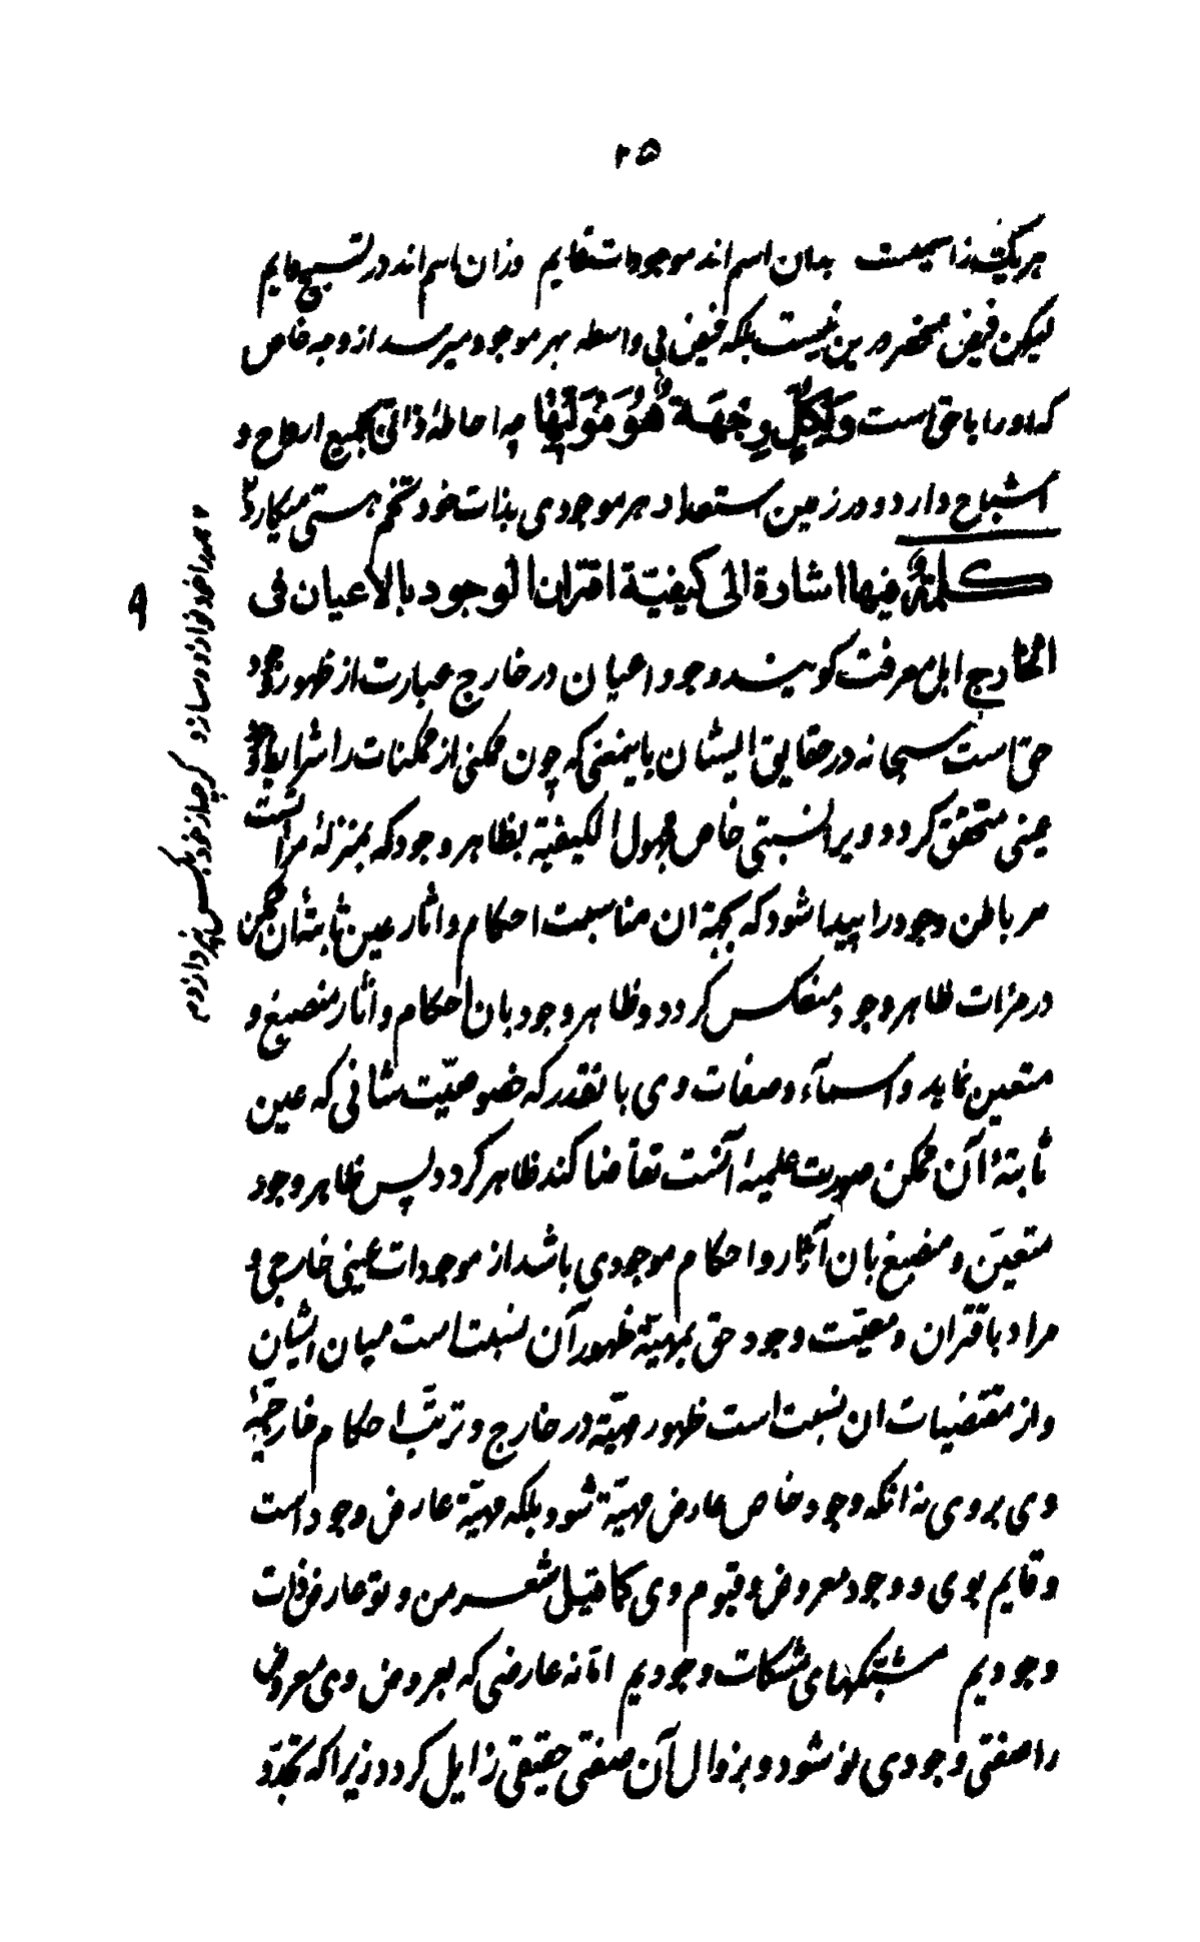 ۲۵
هر یکی را اسمیست بدان اسم‌اند موجودات قایم وزان اسم‌اند در تسبیح دایم
لیکن فیض منحصر درین نیست بلکه فیض بی واسطه بهر موجود میرسد از وجه خاص
که او را با حق است وَلِكُلٍّ وِجْهَة هُوَ مُوَلِّيهَا چه احاطهٔ ذاتی بجمیع ارواح و
اشباح دارد و در زمین استعداد هر موجودی بذات خود تخم هستی میکارد
كلمةٌ فيها اشارة الى كيفيّة اقتران الوجود بالاعيان فى
الخارج اهل معرفت کویند وجود اعیان در خارج عبارت از ظهور وجود
حق است سبحانه در حقایق ایشان باینمعنی که چون ممکنی از ممکنات را شرایط وجود
عینی متحقق کردد ویرا نسبتی خاص مجهول الکیفیة بظاهر وجود که بمنزلهٔ مرآتست
مر باطن وجود را پیدا شود که بجهة ان مناسبت احکام و اثار عین ثابتهٔ ان ممکن
در مرات ظاهر وجود منعکس کردد و ظاهر وجود بان احکام و اثار منصبغ و
متعین نماید و اسمآء و صفات وی بانقدر که خصوصیّت شانی که عین
ثابتهٔ آن ممکن صورت علمیهٔ آنست تقاضا کند ظاهر کردد پس ظاهر وجود
متعیّن و منصبغ بان آثار و احکام موجودی باشد از موجودات عینی خارجی و
مراد باقتران و معیّت وجود حق بمهیّة ظهور آن نسبت است میان ایشان
و از مقتضیات ان نسبت است ظهور مهیّة در خارج و ترتّب احکام خارجیّهٔ
وی بر وی نه انکه وجود خاص عارض مهیّة شود بلکه مهیّة عارض وجود است
و قایم بوی و وجود معروض و قیوم وی کما قیل شعر من و تو عارض ذات
وجودیم مشبّکهای مشکات وجودیم امّا نه عارضی که بعروض وی معروض
را صفتی وجودی نو شود و بزوال آن صفتی حقیقی زایل کردد زیرا که تجدّد
همه را خود نوازد و سازد کرچه از خود بکس نپردازد م
۹